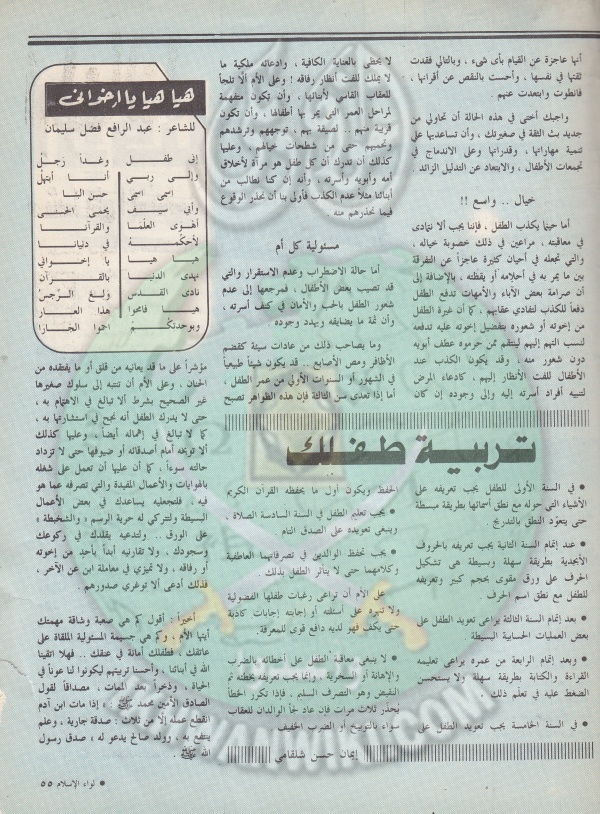 أنها عاجزة عن القيام بأى شىء ، وبالتالي فقدت
ثقتها في نفسها ، وأحست بالنقص عن أقرانها ،
فانطوت وابتعدت عنهم .
واجبك أختى في هذه الحالة أن تحاولى من
جديد بث الثقة في صغيرتك ، وأن تساعديها على
تنمية مهاراتها ، وقدراتها وعلى الاندماج في
تجمعات الأطفال ، والابتعاد عن التدليل الزائد .
خيال .. واسع !!
أما حينما يكذب الطفل ، فإننا يجب ألا نتمادى
في معاقبته ، مراعين في ذلك خصوبة خياله ،
والتي تجعله في أحيان كثيرة عاجزاً عن التفرقة
بين ما يمر به في أحلامه أو يقظته ، بالإضافة إلى
أن صرامة بعض الآباء والأمهات تدفع الطفل
دفعاً للكذب لتفادى عقابهم ، كما أن غيرة الطفل
من إخوته أو شعوره بتفضيل إخوته عليه تدفعه
لنسب التهم إليهم لينتقم ممن حرموه عطف أبويه
دون شعور منه ، وقد يكون الكذب عند
الأطفال للفت الأنظار إليهم ، كادعاء المرض
لتنبيه أفراد أسرته إليه وإلى وجوده إن كان
لا يحظى بالعناية الكافية ، وادعائه ملكية ما
لا يملك للفت أنظار رفاقه ! وعلى الأم ألا تلجأ
للعقاب القاسى لأبنائها ، وأن تكون متفهمة
لمراحل العمر التي يمر بها أطفالها ، وأن تكون
قريبة منهم .. لصيقة بهم ، توجههم وترشدهم
وتحميهم حتى من شطحات خيالهم ، وعليها
كذلك أن تدرك أن كل طفل هو مرآة لأخلاق
أمه وأبويه وأسرته ، وأنه إن كنا نطالب من
أبنائنا مثلاً عدم الكذب فأولى بنا أن نحذر الوقوع
فيما نحذرهم منه .
مسئولية كل أم
أما حالة الاضطراب وعدم الاستقرار والتي
قد تصيب بعض الأطفال ، فمرجعها إلى عدم
شعور الطفل بالحب والأمان في كنف أسرته ،
وأن ثمة ما يضايقه ويهدد وجوده .
وما يصاحب ذلك من عادات سيئة كقضم
الأظافر ومص الأصابع .. قد يكون شيئاً طبيعياً
في الشهور أو السنوات الأولى من عمر الطفل ،
أما إذا تعدى سن الثالثة فإن هذه الظواهر تصبح
هيا هيا يا إخوانى
للشاعر : عبد الرافع فضل سليمان
إنى طفــل وغداً رَجل
وإلى ربى أنـا أبتهل
اسمى اسمى حسن البنا
وأبي سيف يحمى الحسنى
أهوى العلْمَا والقرآنا
لأحكمه في دنيانا
هيا هيا يا إخواني
نهدى الدنيا بالقرآن
نادى القدس ولغ الرّجس
هيا فامحوا هذا العار
وبوحدتكم
مؤشراً على ما قد يعانيه من قلق أو ما يفتقده من
الحنان ، وعلى الأم أن تنتبه إلى سلوك صغيرها
غير الصحيح بشرط ألا تبالغ في الاهتمام به ،
حتى لا يدرك الطفل أنه نجح في استثارتها به ،
كما لا تبالغ في إهماله أيضاً ، وعليها كذلك
ألا توبخه أمام أصدقائه أو ضيوفها حتى لا تزداد
حالته سوءاً ، كما أن عليها أن تعمل على شغله
بالهوايات والأعمال المفيدة والتي تصرفه عما هو
فيه : فلتجعليه يساعدك في بعض الأعمال
البسيطة ولتتركى له حرية الرسم « والشخبطة »
على الورق .. ولتدعيه يقلدك في ركوعك
وسجودك ، ولا تقارنيه أبداً بأحد من إخوته
أو رفاقه ، ولا تميزى في معاملة ابن عن الآخر ،
فذلك أدعى ألا توغرى صدورهم .
أخيراً : أقول كم هي صعبة وشاقة مهمتك
أيتها الأم ، وكم هي جسيمة المسئولية الملقاة على
عاتقك ، فطفلك أمانة في عنقك .. فهلا اتقينا
الله في أبنائنا ، وأحسنا تربيتهم ليكونوا لنا عوناً في
الحياة ، وذخراً بعد الممات ، مصداقاً لقول
الصادق الأمين محمد ﷺ : « إذا مات ابن آدم
انقطع عمله إلا من ثلاث : صدقة جارية ، وعلم
ينتفع به ، وولد صالح يدعو له » صدق رسول
الله ﷺ .
تربية طفلك
• في السنة الأولى للطفل يجب تعريفه على
الأشياء التي حوله مع نطق أسمائها بطريقة مبسطة
حتى يتعوّد النطق بالتدريج .
• عند إتمام السنة الثانية يجب تعريفه بالحروف
الأبجدية بطريقة سهلة وبسيطة هى تشكيل
الحرف على ورق مقوى بحجم كبير وتعريفه
للطفل مع نطق اسم الحرف .
• بعد إتمام السنة الثالثة يراعى تعويد الطفل على
بعض العمليات الحسابية البسيطة .
• وبعد إتمام الرابعة من عمره يراعى تعليمه
القراءة والكتابة بطريقة سهلة ولا يستحسن
الضغط عليه في تعلّم ذلك .
• في السنة الخامسة يجب تعويد الطفل على
الحفظ ويكون أول ما يحفظه القرآن الكريم
• يجب تعليم الطفل في السنة السادسة الصلاة ،
وينبغى تعويده على الصدق التام
• يجب تحفظ الوالدين في تصرفاتهما العاطفية
وكلامهما حتى لا يتأثر الطفل بذلك .
على الأم أن تراعى رغبات طفلها الفضولية
ولا تنهره على أسئلته أو إجابته إجابات كاذبة
حتى يكف فهو لديه دافع قوى للمعرفة .
• لا ينبغى معاقبة الطفل على أخطائه بالضرب
والإهانة أو السخرية ، وإنما يجب تعريفه بخطئه ثم
النقيض وهو التصرف السليم . فإذا تكرر الخطأ
يُحذر ثلاث مرات فإن عاد لجأ الوالدان للعقاب
سواء بالتوبيخ أو الضرب الخفيف
إيمان حسن شلقامى
• لواء الإسلام ٥٥